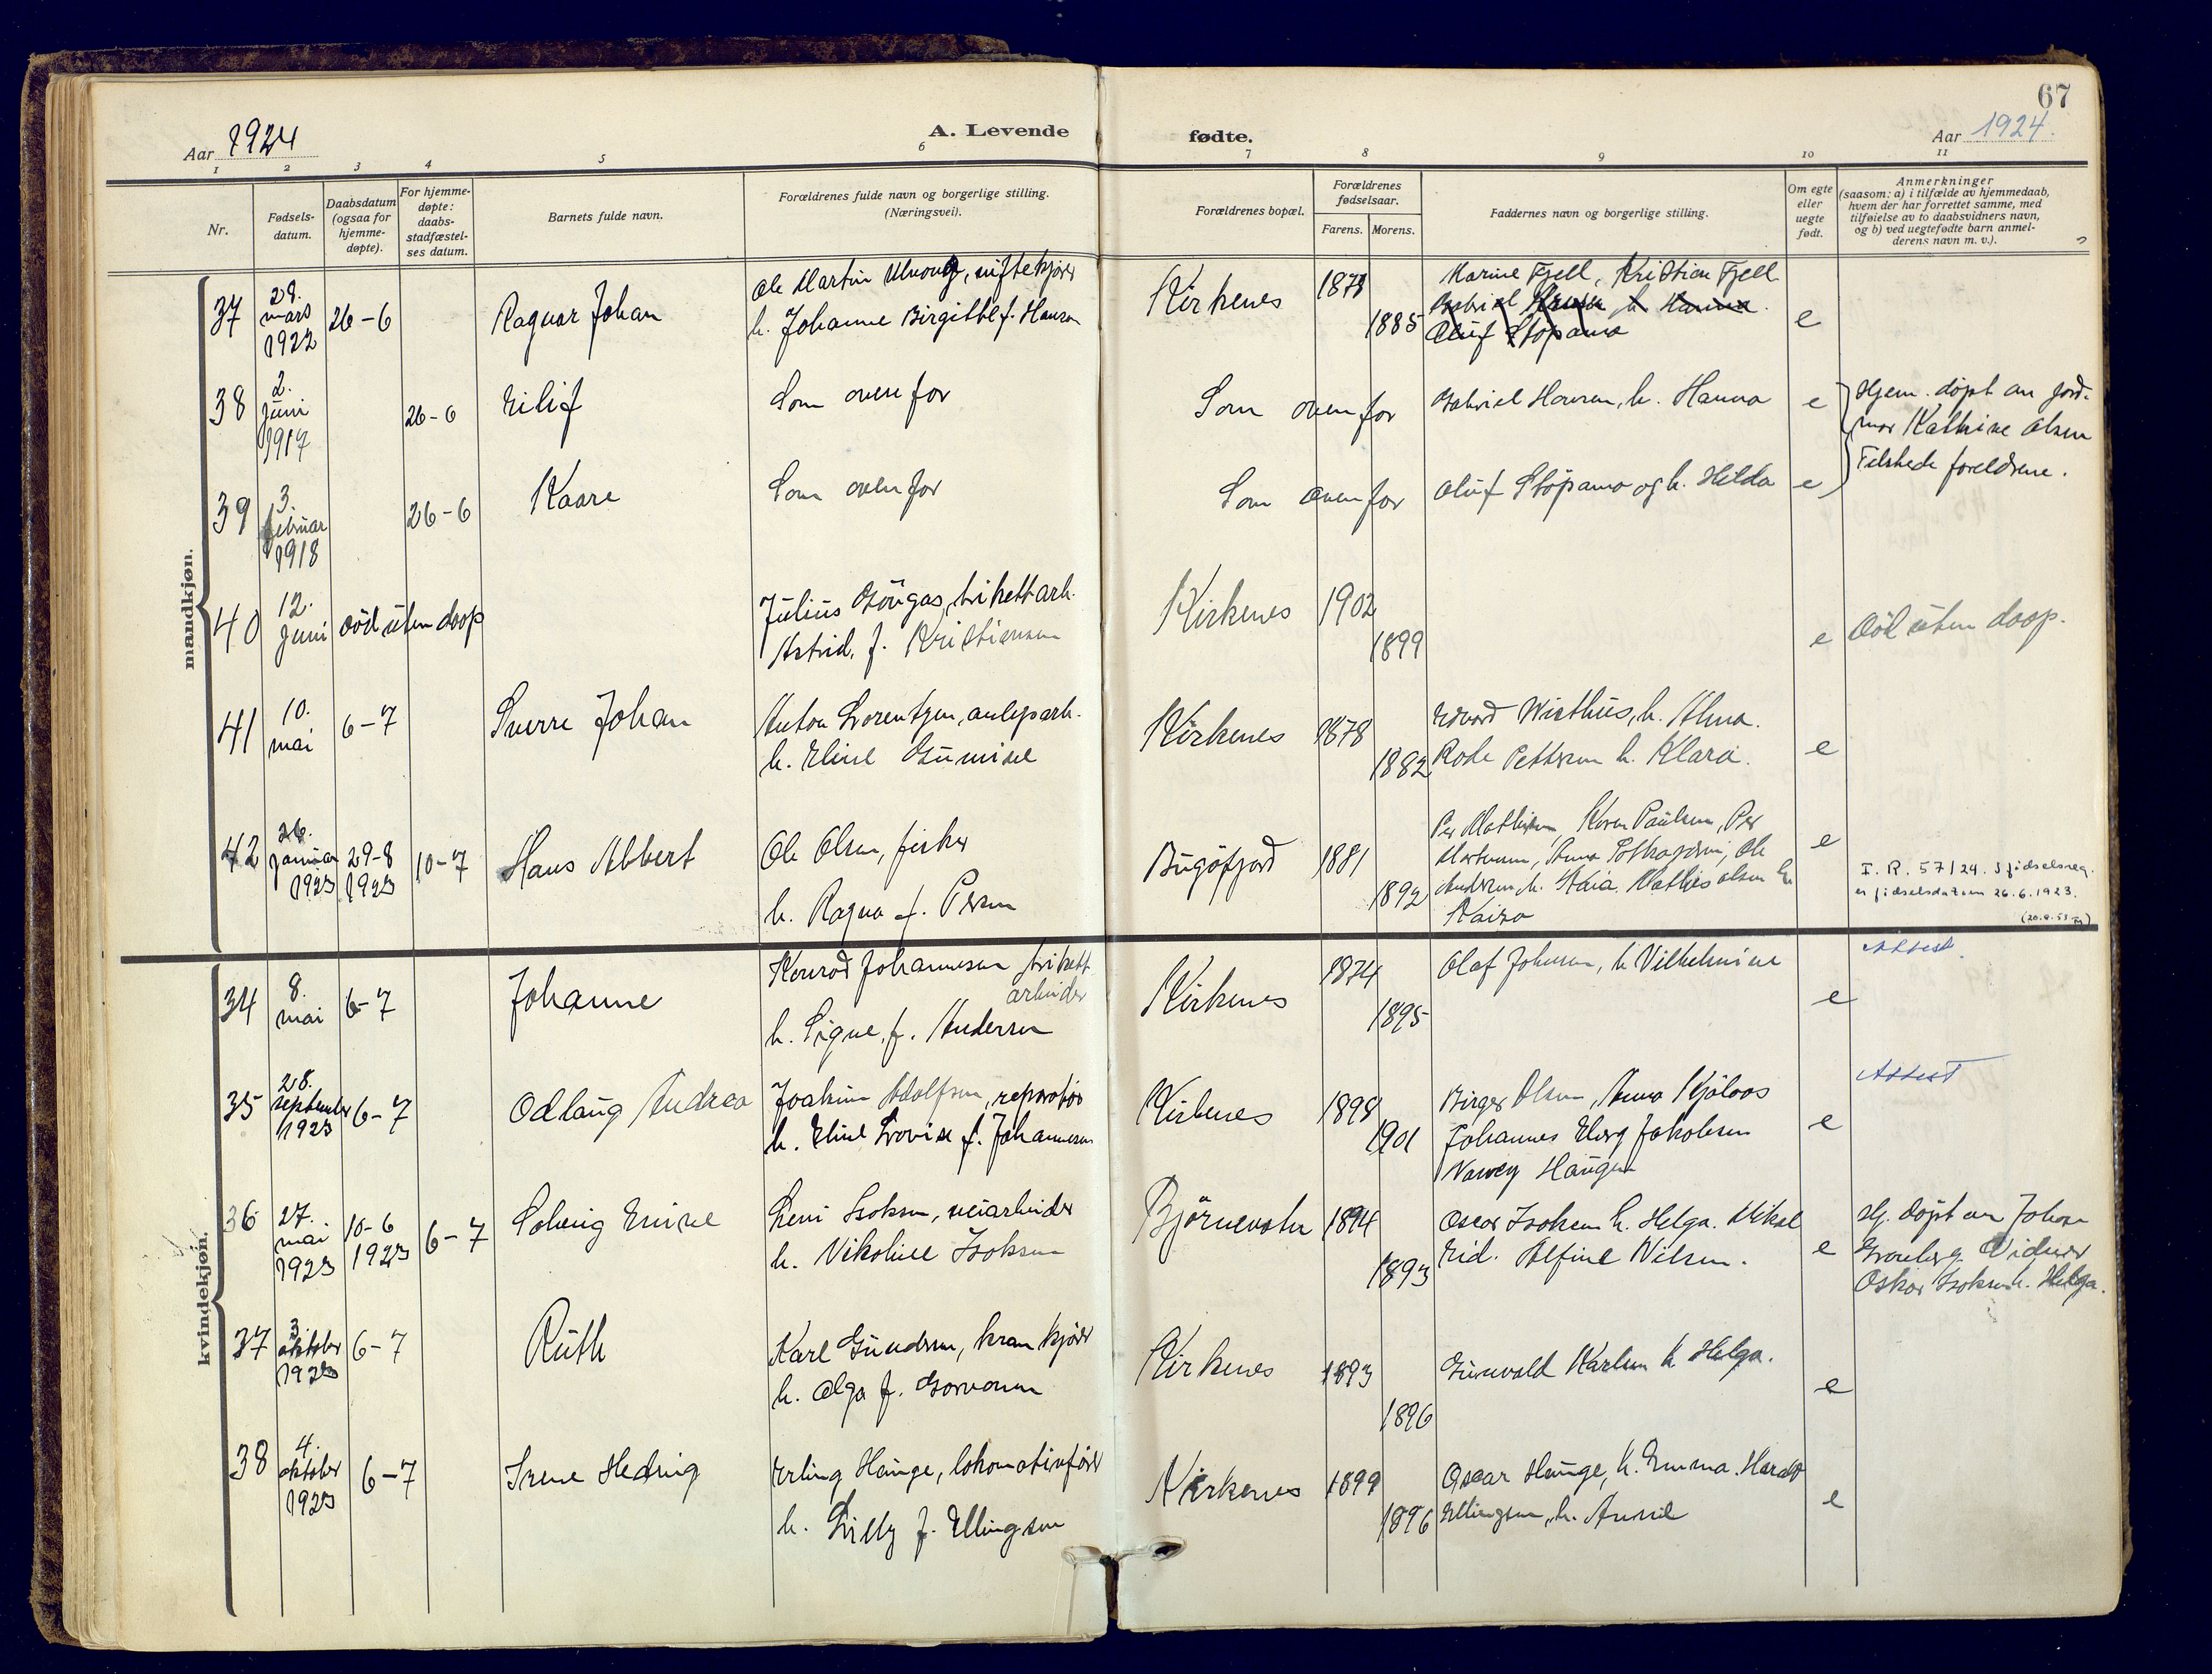 67
Aar 1924
A. Levende fødte.
Aar 1924.
1 2 3 4 5 6 7 8 9 10 11
Nr.
Fødsels-
datum.
Daabsdatum
(ogsaa for
hjemme-
døpte).
For hjemme-
døpte:
daabs-
stadfæstel-
ses datum.
Barnets fulde navn.
Forældrenes fulde navn og borgerlige stilling.
(Næringsvei).
Forældrenes bopæl.
Forældrenes
fødselsaar.
Farens. Morens.
Faddernes navn og borgerlige stilling.
Om egte
eller
uegte
født.
Anmerkninger
(saasom: a) i tilfælde av hjemmedaab,
hvem der har forrettet samme, med
tilføielse av to daabsvidners navn,
og b) ved uegtefødte barn anmel-
derens navn m. v.).
mandkjøn.
37
mars
1922
26-6
Ragnar Johan
Ole Martin
h. Johanne Birgitte f. Hansen
Kirkenes
1885
Marine Fjell, Kristian Fjell
Gabriel h. Hanna.
Oluf Stöpamo
e
38
2.
juni
1917
26-6
Eilif
Som ovenfor
Som ovenfor
Gabriel Hansen, h. Hanna
e
Hjem. døpt av jord-
mor Kathrine Olsen
Tilstede foreldrene.
39
3.
februar
1918
26-6
Kaare
Som ovenfor
Som ovenfor
Oluf Stöpamo og h. Hilda
e
40
12.
juni
död uten daap
Julius
Astrid, f. Kristiansen
Kirkenes
1902
1899
e
Död uten daap.
41
10.
mai
6-7
Sverre Johan
Anton Lorentzen, anlegsarb.
h. Eline
Kirkenes
1878
1882
Edvard h. Alma.
Pettersen h. Klara.
e
42
26.
januar
1923
29-8
1923
10-7
Hans Albert
Ole Olsen, fisker
h. Ragna f. Persen
Bugöfjord
1881
1892
Per Mathisen, Karen Paulsen, Per
Anna Ole
Andersen h. Kaia. Mathis Olsen h.
Kaisa
e
I. R. 57/24. I fødselsreg.
er fødselsdatum 26.6.1923.
kvindekjøn.
34
8.
mai
6-7
Johanne
Konrad Johannesen brikett
arbeider
h. Signe, f. Andersen
Kirkenes
1874
1895
Olaf Johnsen, h. Vilhelmine
e
Attest.
35
28.
september
1923
6-7
Odlaug Andrea
Joakim Adolfsen, reparatör
h. Eline Lovise f. Johannesen
Kirkenes
1898
1901
Birger Olsen, Anna
Johannes Jakobsen
Haugen
e
Attest
36
27.
mai
1923
10-6
1923
6-7
Solveig
Isaksen, veiarbeider
h. Nikoline Isaksen
Björnevatn
1894
1893
Oscar Isaksen h. Helga. Mikal
Eid. Alfine Nilsen.
e
Hj. döpt av Johan
Vidner
Oskar Isaksen h. Helga.
37
3.
oktober
1923
6-7
Ruth
Karl Gundersen, kran kjörer
h. Olga f.
Kirkenes
1893
1896
Gunvald Karlsen h. Helga.
e
38
4.
oktober
1923
6-7
Irene Hedvig
Erling Hauge, lokomotivförer
h. Lilly f. Ellingsen
Kirkenes
1899
1896
Oscar Hauge, h. Emma. Harald
Ellingsen, h.
e